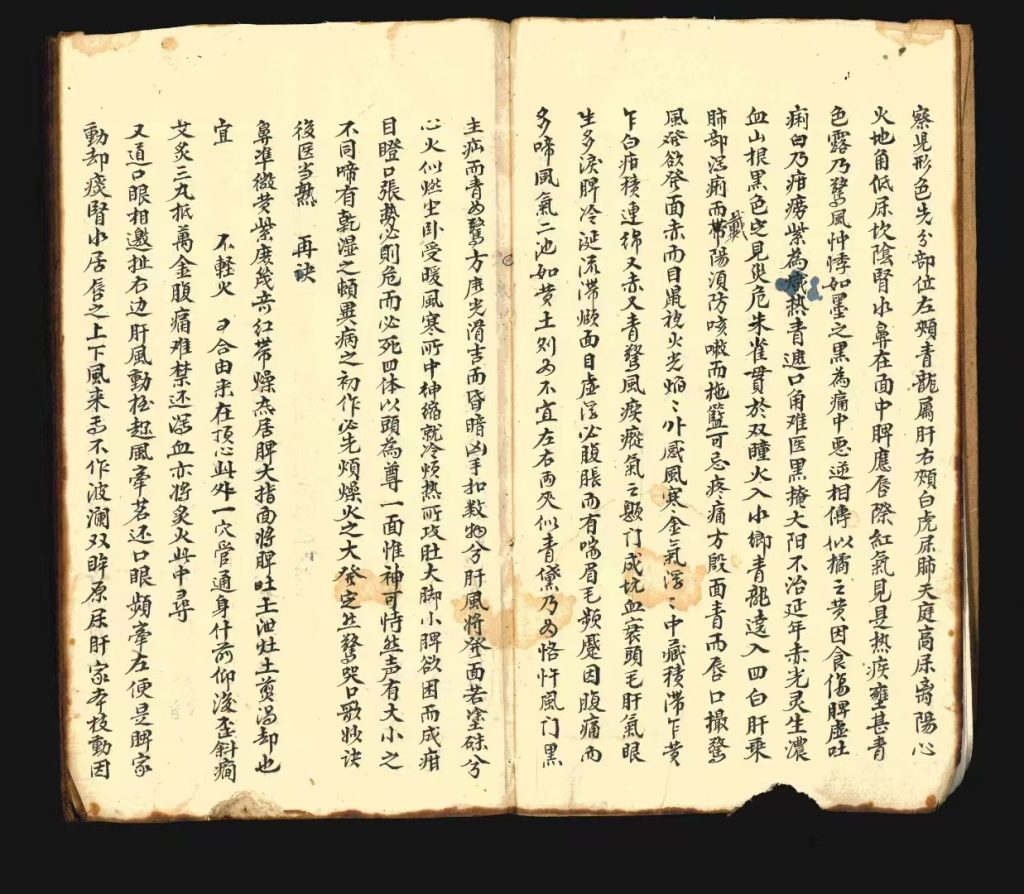 察児形色先分部位左頰青龍属肝右頰白虎属肺天庭高属离陽心
火地角低属坎陰腎水鼻在面中脾應唇際紅氣見是热疾壅甚青
色露乃驁風忡悸如墨之黒為痛中悪逆相傳似橘之黄因食傷脾虚吐
痢白乃疳癆紫為咸热青遮口角难医黒掩大阳不治延年赤光灵生濃
血山根黒色定見災危朱雀貫於双瞳火入小鄉青龍遠入四白肝乘
肺部泻痢而帶戴陽須防咳嗽而拖籃可忌疼痛方殷面青而唇口撮驁
風發欲發面赤而目鼠視火光焰〻外感風寒金氣浮〻中藏積滞乍黄
乍白疳積連綿又赤又青驁風瘈瘲氣之顖门成坑血衰頭毛肝氣眼
生多淚脾冷涎流滞頰面目虚浮必腹脹而有喘眉毛頻蹙因腹痛而
多啼風氣二池如黄土则为不宜左右两夾似青黛乃为恪忤風门黒
主疝而青为驁方廣光滑吉而昏暗凶手扣数物兮肝風將發面若塗硃兮
心火似燃坐卧受暖風寒所中神縮就冷煩热所攻肚大脚小脾欲困而成疳
目瞪口張势必則危而必死四体以頭為尊一面惟神可恃然声有大小之
不同啼有乾湿之頓異病之初作必先煩燥火之大發定然驁哭口歌妙诀
後医当熟 再诀
鼻準微黄紫庶幾奇红带燥热居脾大指面將脾吐土泄灶土煎湯却也
宜 不軽火 另合由来在顶心此外一穴管通身什前仰後歪斜癎
艾炙三丸抵萬金腹痛难禁还泻血亦將炙火此中尋
又道口眼相邀扯右边肝風動抢起風牽若还口眼頻牽左便是脾家
動却痰腎水居唇之上下風来王不作波瀾双眸原属肝家本枝動因